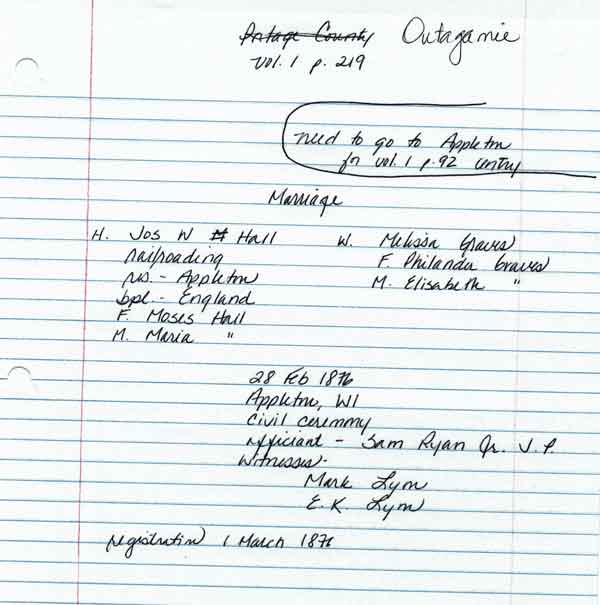 Portage County Outagamie
vol. 1 p. 219
need to go to Appleton
for vol. 1 p. 92 entry
Marriage
H. Jos W H Hall W. Melissa Graves
railroading F. Philanda Graves
res. - Appleton M. Elisabeth "
bpl. - England
F. Moses Hall
M. Maria "
28 Feb 1876
Appleton, WI
civil ceremony
officiant - Sam Ryan Jr. J.P.
Witnesses -
Mark Lyon
E.K. Lyon
registration 1 March 1876